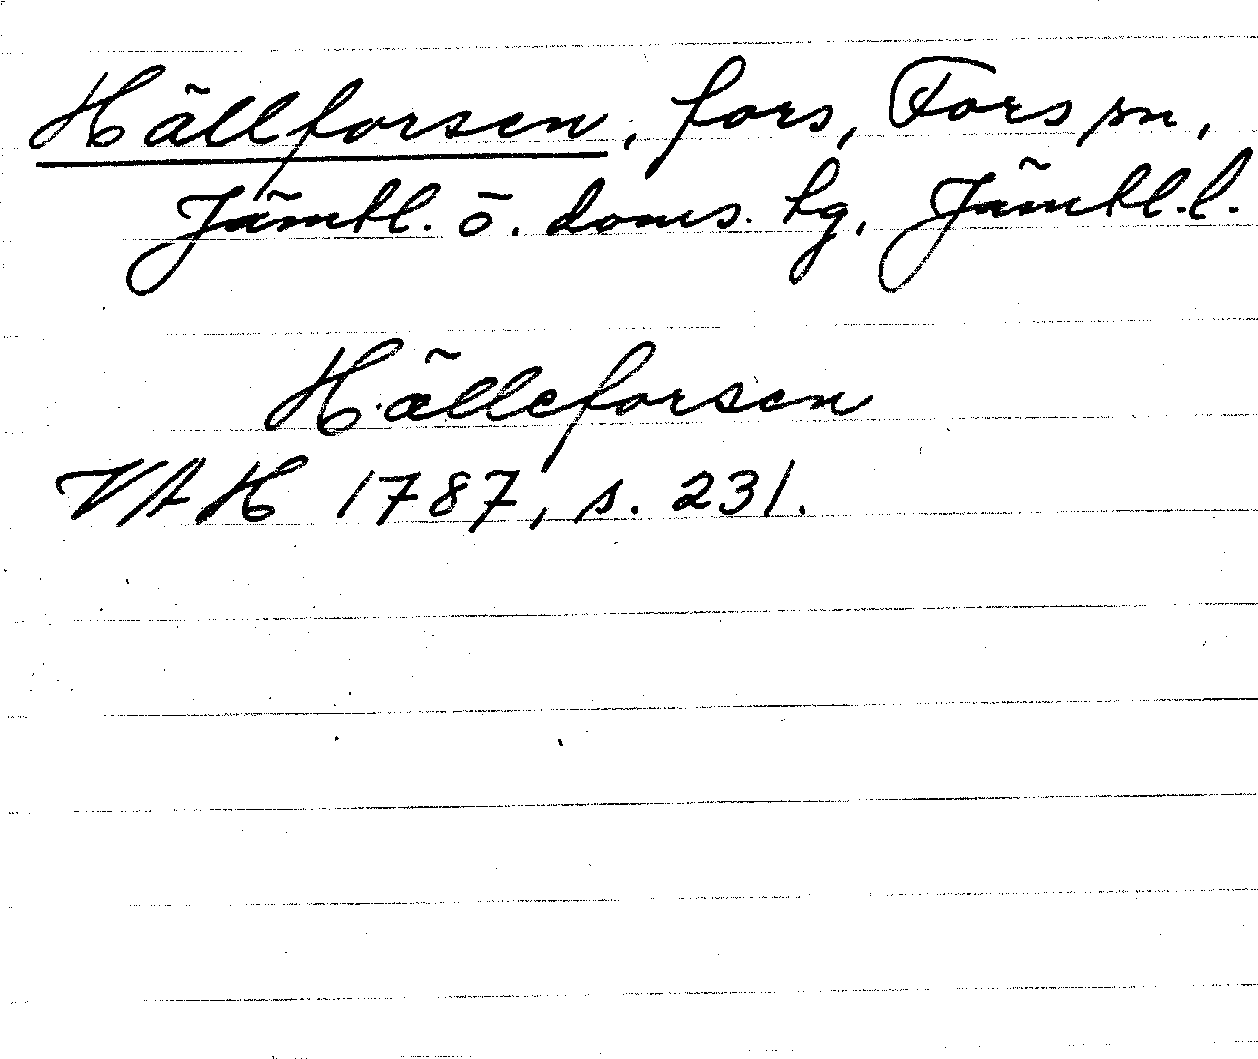 Hällforsen, fors, Fors sn,
Jämtl. ö. doms. hg, Jämtl. l.
Hälleforsen
VAH 1787, s. 231.